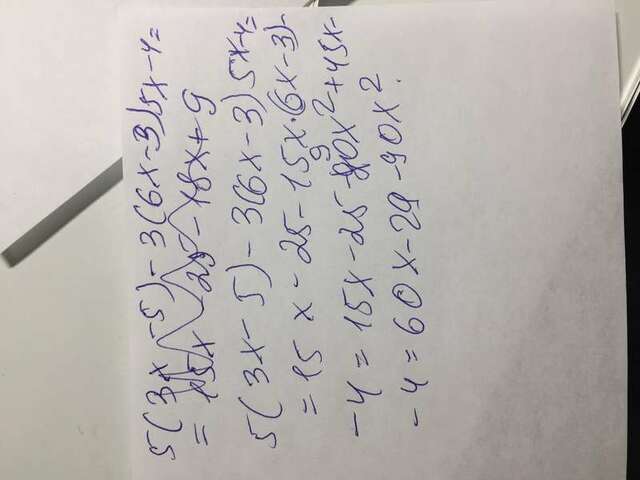 5(3x-5)-3(6x-3)5x-4=
= 15x - 25 - 18x + 9
5(3x-5)-3(6x-3)5x-4=
= 15x - 25 - 15x·(6x-3)-
-4 = 15x - 25 - 90x² + 45x-
-4 = 60x - 29 - 90x².